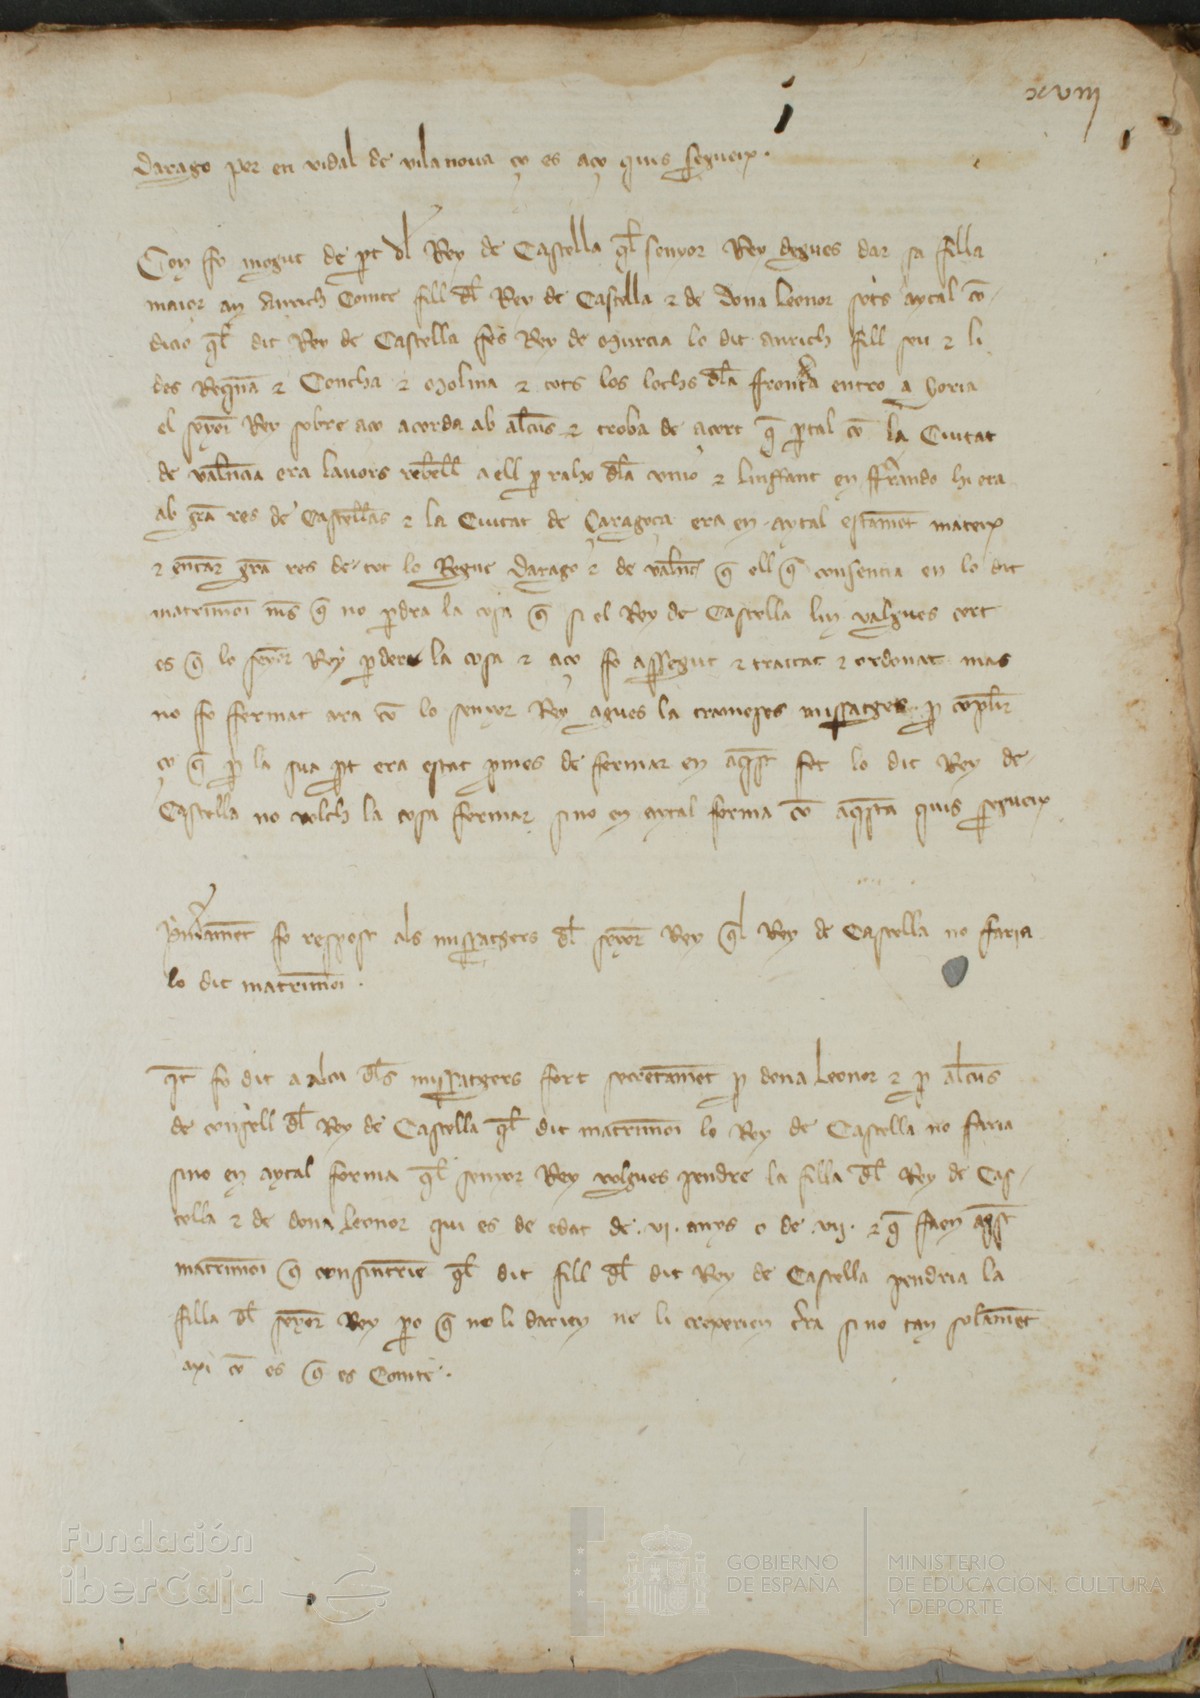 xviij
darago per en vidal de vilanova ço es aço quis segueix.
Con fo mogut de pt dl Rey de Castella ql senyor Rey degues dar sa filla
maior an Anrich Comte fill dl Rey de Castella ⁊ de Dona Leonor sots aytal co-
dicio ql dit Rey de Castella fes Rey de Murcia lo dit anrich fill seu ⁊ li
des Reqna ⁊ Concha ⁊ Molina ⁊ tots los lochs dla frontа entro a Soria
el senyor Rey sobre aço acorda ab alcus ⁊ troba de acort q ptal co la Ciutat
de valncia era lavors rebell a ell p raho dla unio ⁊ linffant en ffrando hi era
ab gra res de Castellas ⁊ la Ciutat de Çaragoça era en aytal estamet mateix
⁊ encar gra res de tot lo Regne darago ⁊ de valnc q ell q consentia en lo dit
matrimoi ms q no pdra la cosa q si el Rey de Castella lin valgues cert
es q lo senyor Rey pdera la cosa ⁊ aço fo asegut ⁊ traitat ⁊ ordonat mas
no fo fermat ara co lo senyor Rey agues la trameses missatges p coplir
ço q p la sua pt era estat pmes de fermar en aqst fet lo dit Rey de
Castella no volch la cosa fermar sino en aytal forma co aqsta quis segueix
Primamet fo respost als missatgers dl senyor Rey ql Rey de Castella no faria
lo dit matrimoi.
It fo dit a alcu dls missatgers fort secretamet p dona Leonor ⁊ p alcus
de consell dl Rey de Castella ql dit matrimoi lo Rey de Castella no faria
sino en aytal forma ql senyor Rey volgues pendre la filla dl Rey de Cas-
tella ⁊ de dona Leonor qui es de edat de .vi. anys o de .vii. ⁊ q faen aqst
matrimoi q consintrie ql dit fill dl dit Rey de Castella pendria la
filla dl senyor Rey po q no li darien ne li crexerien tra sino tan solamet
axi co es q es Comte.
Fundación
iberCaja
GOBIERNO
DE ESPAÑA
MINISTERIO
DE EDUCACIÓN, CULTURA
Y DEPORTE